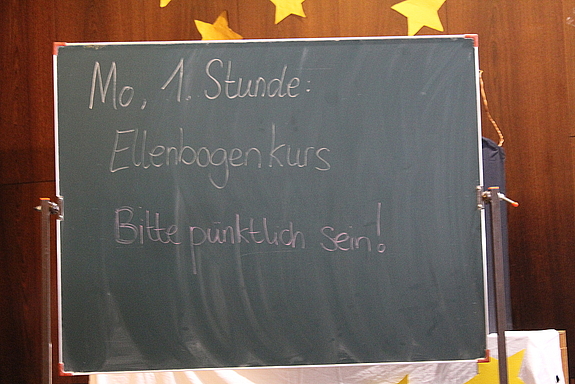 Mo, 1. Stunde:
Ellenbogenkurs
Bitte pünktlich sein!